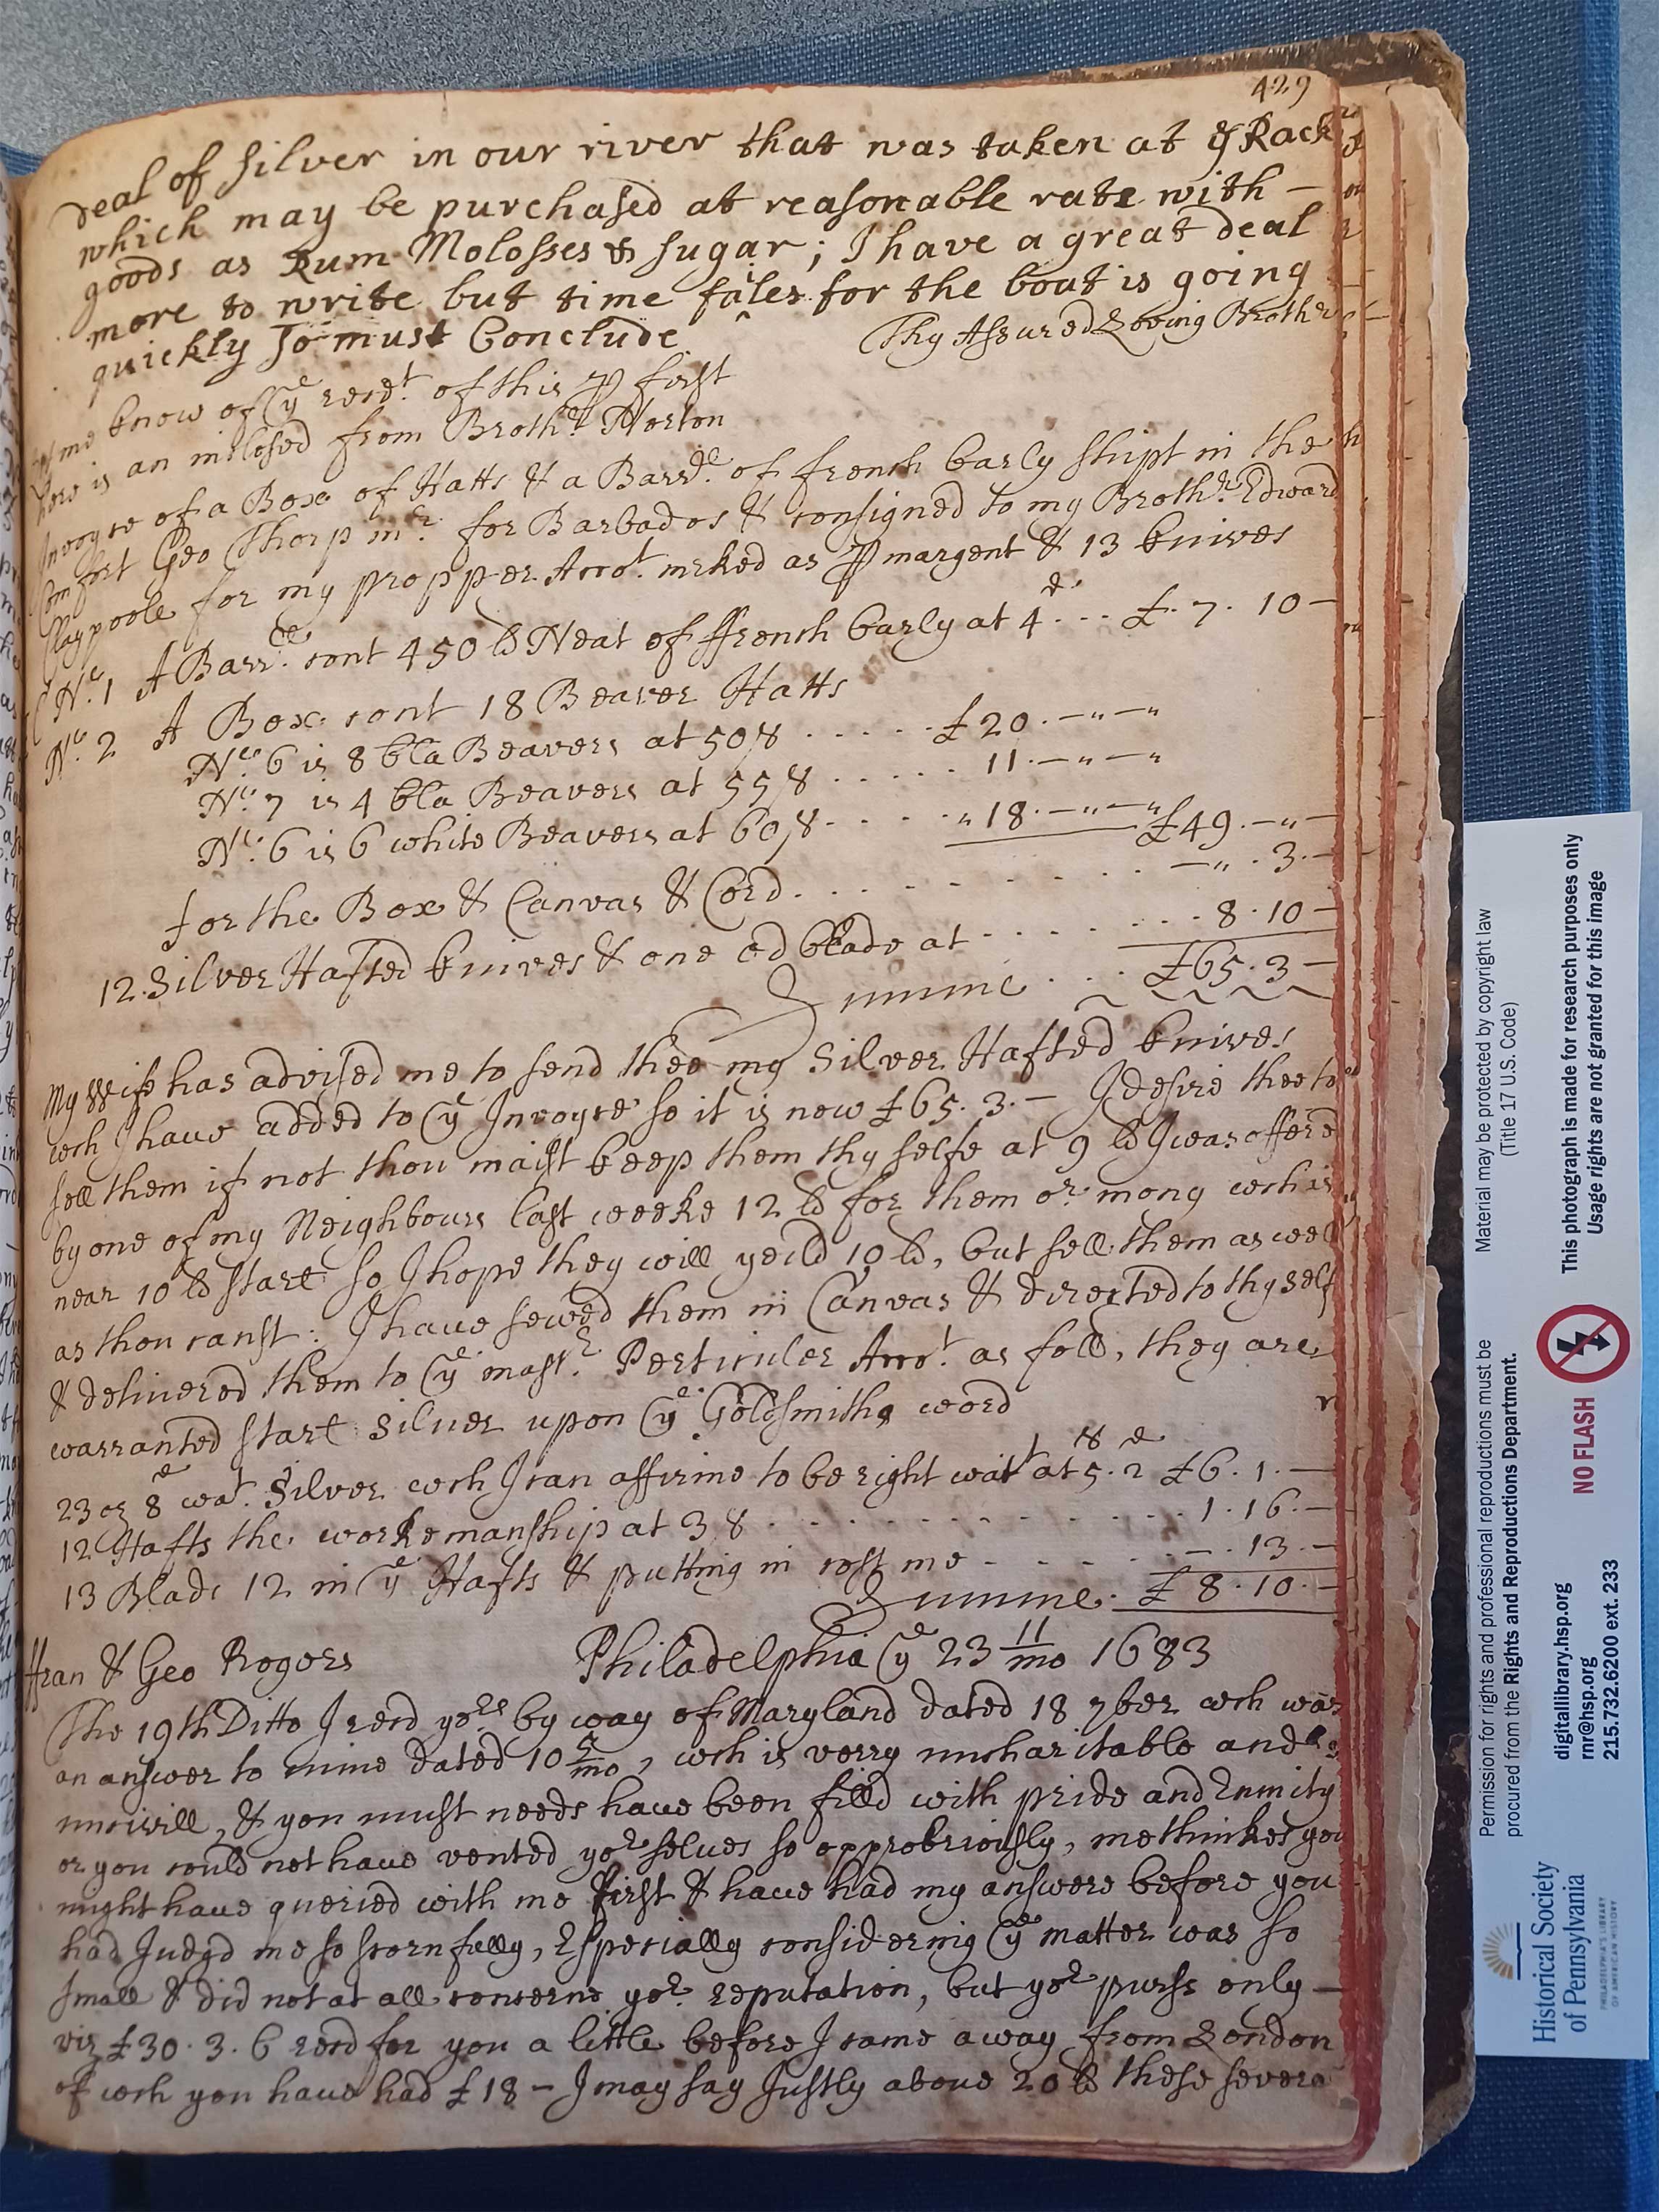 429
deal of silver in our river that was taken at ye Rack
which may be purchased at reasonable rate with —
goods as Rum Molosses & sugar; I have a great deal
more to write but time failes for the boat is going
quickly so must Conclude
Thy Assured Loving Brother
me know of ye recd.t of this p first
here is an inclosed from Broth.r Norton
Invoyce of a Box of Hatts & a Barr.le of french barly shipt in the
Comfort Geo Thorp m.r for Barbados & consigned to my Broth.r Edward
Claypoole for my propper Acco.t mrked as p margent & 13 knives
N.o 1 A Barr.le cont 450 lb Neat of ffrench barly at 4 d ... £ . 7 . 10 —
N.o 2 A Box cont 18 Beaver Hatts
N.o 6 is 8 bla Beavers at 50/s ..... £20.—"—"
N.o 7 is 4 bla Beavers at 55/s ..... 11.—"—"
N.o 6 is 6 white Beavers at 60/s ..... "18.—"—" £49.—"—
for the Box & Canvas & Cord ......... —".3.—
12 Silver Hafted knives & one od blade at ..... 8.10—
Summe ... £65.3—
My Wife has advised me to send thee my Silver Hafted knives
wch I have added to ye Invoyce so it is now £65.3.— I desire thee to
sell them if not thou maist keep them thy selfe at 9 lb I was offerd
by one of my Neighbours last weeke 12 lb for them or. mony wch is
near 10 lb starl so I hope they will yeild 10 lb, but sell them as well
as thou canst: I have sewed them in Canvas & directed to thy self
& delivered them to ye mast.r Perticuler Acco.t as foll, they are
warranted starl: Silver upon ye Goldsmiths word
23 oz 8 d wa.t Silver wch I can affirme to be right wat at 5 s. 2 d £6.1.—
12 Hafts the workemanship at 3 s .......... 1.16.—
13 Blads 12 in ye Hafts & putting in cost me ..... —.13.—
Summe. £8.10.—
ffran & Geo Rogers Philadelphia ye 23 11/mo 1683
The 19th Ditto I recd yo.rs by way of Maryland dated 18 7ber wch was
an answer to mine dated 10 5/mo, wch is verry uncharitable and
uncivill, & you must needs have been filld with pride and Enmity
or you could not have vented yo.r selves so opprobriously, methinkes you
might have queried with me first & have had my answere before you
had Judgd me so scornfully, Especially considering ye matter was so
small & did not at all concerne yo.r reputation, but yo.r purss only —
viz £30.3.6 recd for you a little before I came away from London
of wch you have had £18 — I may say Justly above 20 lb these severa
Historical Society
of Pennsylvania
PHILADELPHIA'S LIBRARY
OF AMERICAN HISTORY
Permission for rights and professional reproductions must be
procured from the Rights and Reproductions Department.
digitallibrary.hsp.org
rnr@hsp.org
215.732.6200 ext. 233
NO FLASH
Material may be protected by copyright law
(Title 17 U.S. Code)
This photograph is made for research purposes only
Usage rights are not granted for this image